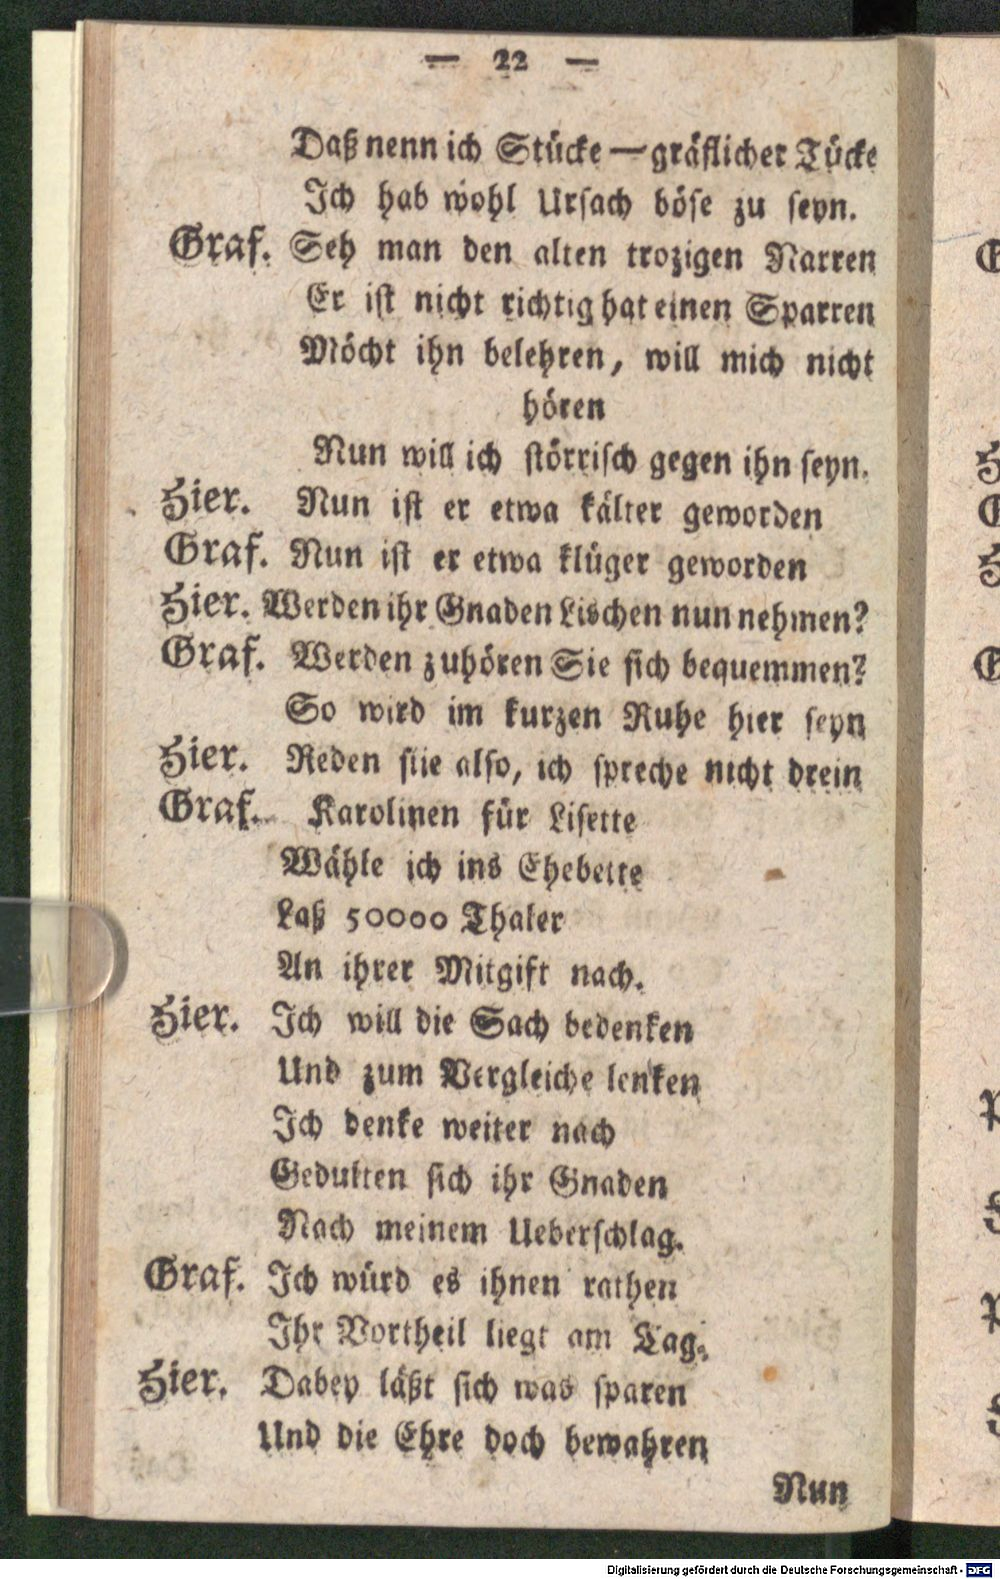 — 22 —
Daß nenn ich Stücke — gräflicher Tücke
Ich hab wohl Ursach böse zu seyn.
Graf. Seh man den alten trozigen Narren
Er ist nicht richtig hat einen Sparren
Möcht ihn belehren, will mich nicht
hören
Nun will ich störrisch gegen ihn seyn.
Hier. Nun ist er etwa kälter geworden
Graf. Nun ist er etwa klüger geworden
Hier. Werden ihr Gnaden Lischen nun nehmen?
Graf. Werden zuhören Sie sich bequemmen?
So wird im kurzen Ruhe hier seyn
Hier. Reden siie also, ich spreche nicht drein
Graf. Karolinen für Lisette
Wähle ich ins Ehebette
Laß 50000 Thaler
An ihrer Mitgift nach.
Hier. Ich will die Sach bedenken
Und zum Vergleiche lenken
Ich denke weiter nach
Gedulten sich ihr Gnaden
Nach meinem Ueberschlag.
Graf. Ich würd es ihnen rathen
Ihr Vortheil liegt am Tag.
Hier. Dabey läßt sich was sparen
Und die Ehre doch bewahren
Nun
Digitalisierung gefördert durch die Deutsche Forschungsgemeinschaft - DFG